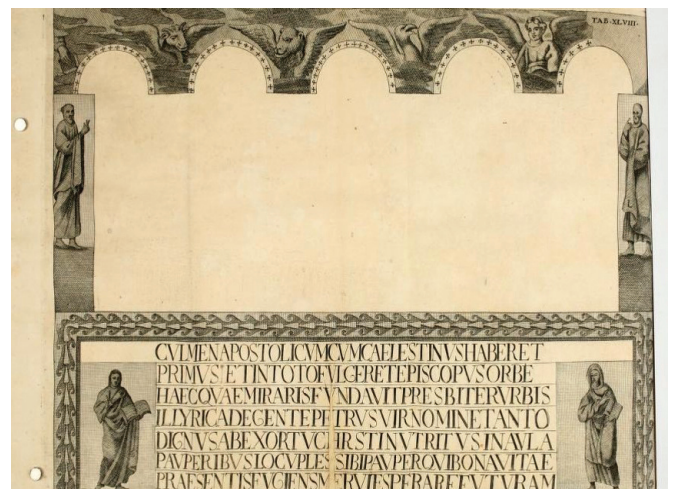 TAB·XLVIII·
CVLMENAPOSTOLICVMCVMCAELESTINVSHABERET
PRIMVSETINTOTOFVLGERETEPISCOPVSORBE
HAECQVAEMIRARISFVNDAVITPRESBITERVRBIS
ILLYRICADEGENTEPETRVSVIRNOMINETANTO
DIGNVSABEXORTVCHRISTINVTRITVSINAVLA
PAVPERIBVSLOCVPLESSIBIPAVPERQVIBONAVITAE
PRAESENTISFVGIENSMERVITSPERAREFVTVRAM